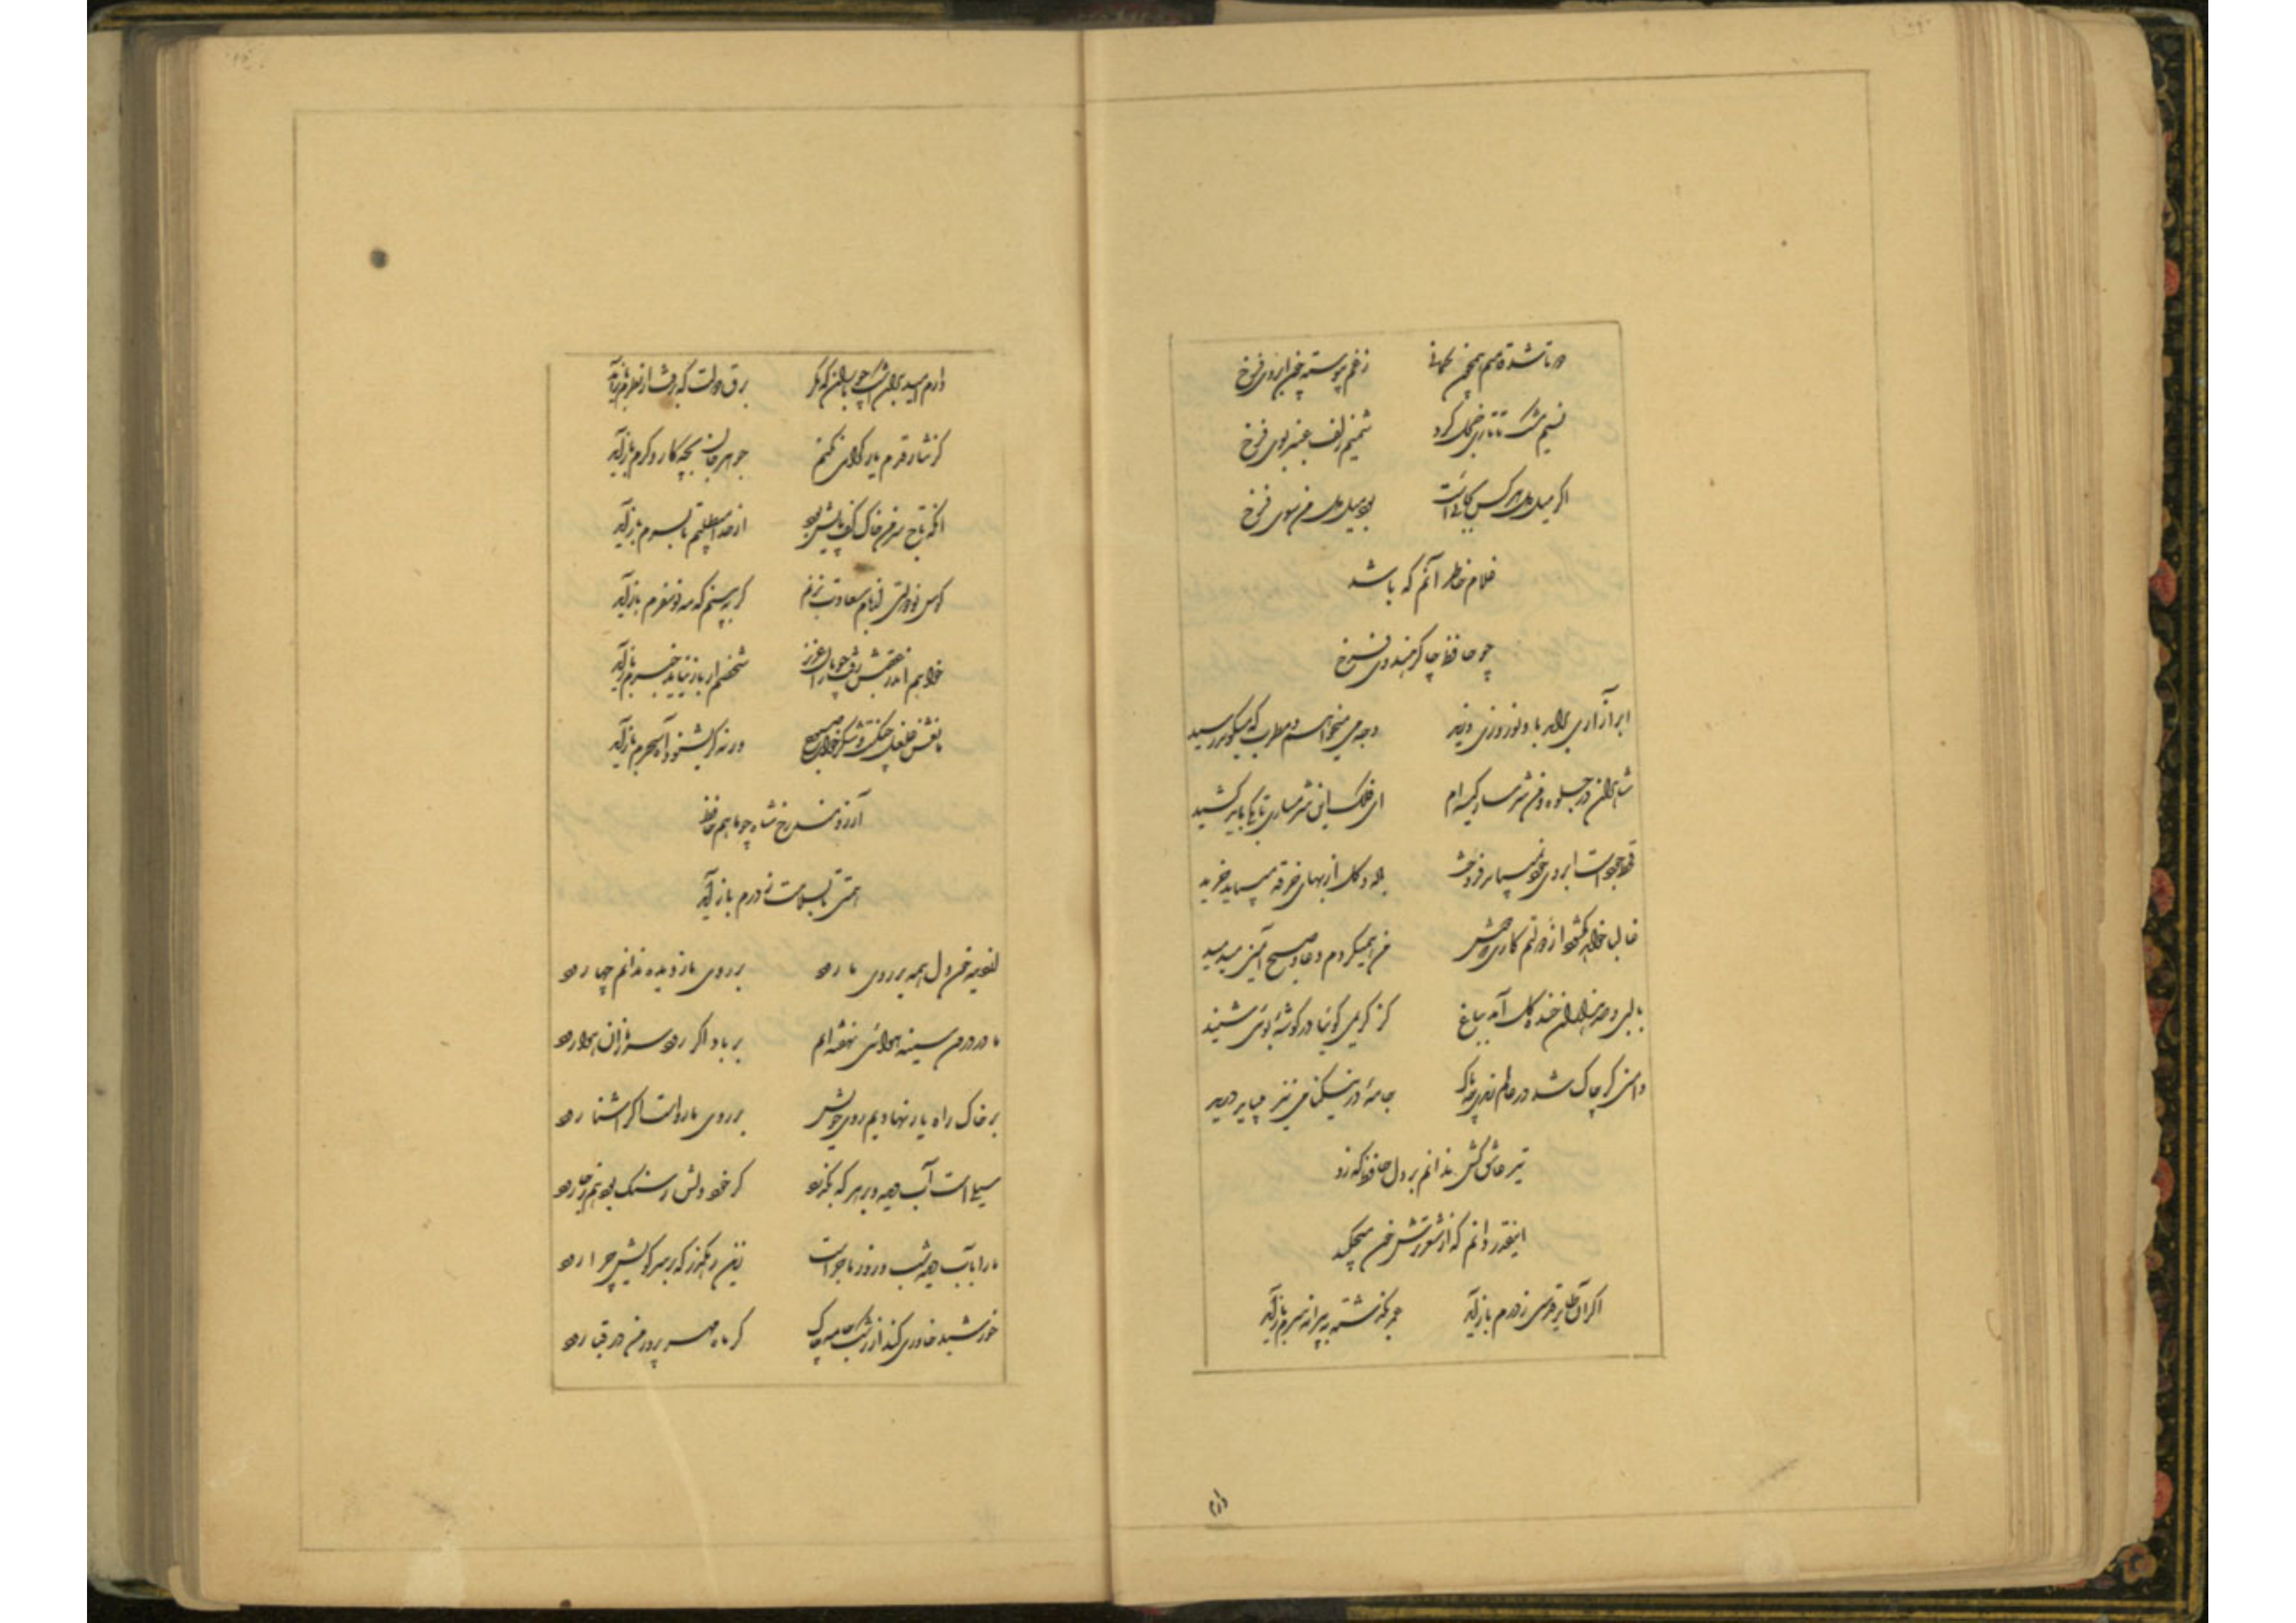 دوتا شد قامتم همچون کمانی ز غم پیوسته چون ابروی فرخ
نسیم مشک تاتاری خجل کرد شمیم زلف عنبربوی فرخ
اگر میل دل هر کس بجائیست بود میل دل من سوی فرخ
غلام خاطر آنم که باشد
چو حافظ چاکر هندوی فرخ
ابر آذاری برآمد باد نوروزی وزید وجه می میخواهم و مطرب که میگوید رسید
شاهدان در جلوه و من شرمسار کیسه ام ای فلک این شرمساری تا بکی باید کشید
قحط جود است ابروی خود نمیباید فروخت باده و گل از بهای خرقه میباید خرید
غالبا خواهد گشود از دولتم کاری که دوش من همیکردم دعا و صبح امین میدمید
با لبی و صد هزاران خنده گل آمد بباغ کز کریمی گوئیا در گوشهٔ بوئی شنید
دامنی گر چاک شد در عالم رندی چه باک جامهٔ در نیکنامی نیز میباید درید
تیر عاشق کش ندانم بر دل حافظ که زد
اینقدر دانم که از شعر ترش خون میچکید
اگر آن طایر قدسی ز درم باز آید عمر بگذشته به پیرانه سرم باز آید
دارم
دارم امید بر این اشک چو باران که مگر برق دولت که برفت از نظرم باز آید
گر نثار قدم یار گرامی نکنم جوهر جان بچه کار دگرم باز آید
آنکه تاج سر من خاک کف پایش بود از خدا میطلبم تا بسرم باز آید
کوس نو دولتی از بام سعادت بزنم گر ببینم که مه نو سفرم باز آید
خواهم اندر عقبش رفت چو یاران عزیز شخصم ار باز نیاید خبرم باز آید
مانعش غلغل چنگست و شکر خواب صبوح ورنه گر بشنود آه سحرم باز آید
آرزومند رخ شاه چو ماهم حافظ
همتی تا بسلامت ز درم باز آید
از دیده خون دل همه بر روی ما رود بر روی ما ز دیده ندانم چها رود
ما در درون سینه هوائی نهفته ایم بر باد اگر رود سر ما زان هوا رود
بر خاک راه یار نهادیم روی خویش بر روی ما رواست اگر آشنا رود
سیلی است آب دیده و بر هر که بگذرد گر خود دلش ز سنگ بود هم ز جا رود
ما را بآب دیده شب و روز ماجراست زین رهگذر که بر سر کویش چرا رود
خورشید خاوری کند از رشک جامه چاک گر ماه مهر پرور من در قبا رود